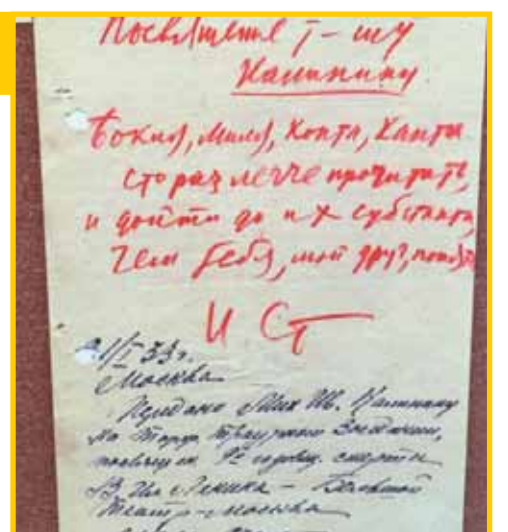 Посвящение т-щу
Калинину.
Бокля, Милля, Конта, Канта
сто раз легче прочитать,
и дойти до их субстанта,
чем тебя, мой друг, понять
И Ст
21/I 33 г.
Москва
Передано Мих Ив. Калинину
на Торж Траурном Заседании,
9й годовщ. смерти
В. Ил Ленина – Большой
Театр – Москва